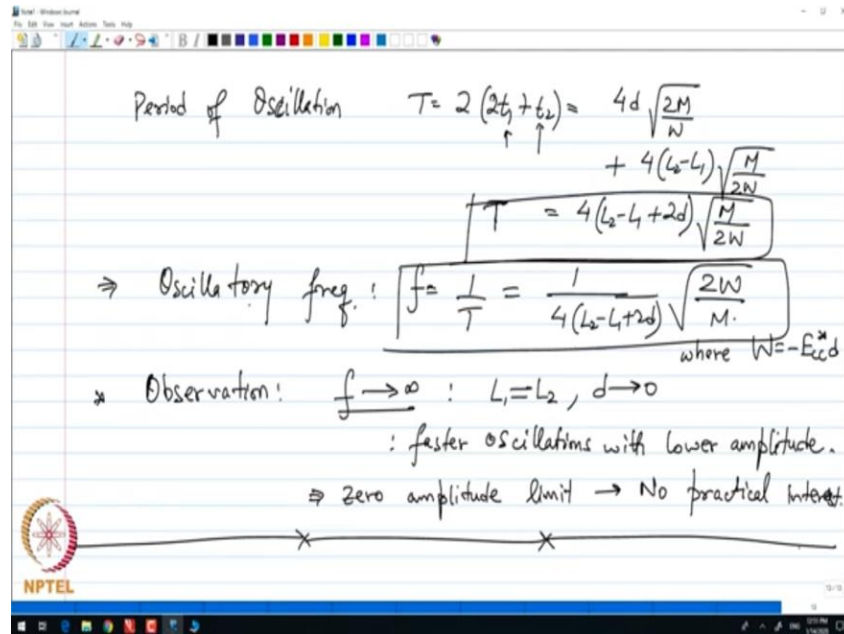 Note1 - Windows Journal
File Edit View Insert Actions Tools Help
B I
Period of Oscillation T = 2 (2t₁ + t₂) = 4d √(2M/W)
+ 4(L₂-L₁) √(M/2W)
T = 4(L₂-L₁+2d) √(M/2W)
⇒ Oscillatory freq. : f = 1/T = 1/(4(L₂-L₁+2d)) √(2W/M).
where W = -E*cc d
* Observation: f → ∞ : L₁ = L₂, d → 0
: faster oscillations with lower amplitude.
⇒ zero amplitude limit → No practical interest.
NPTEL